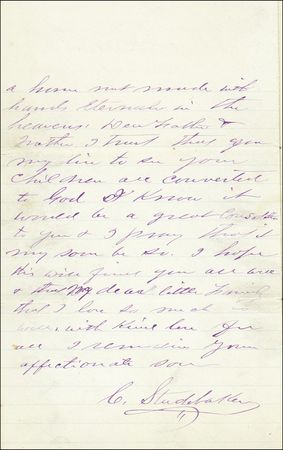 a home not made with
hands Eternal in the
heavens. Dear Father &
Mother I trust that you
my live to see your
children all converted
to God I Know it
would be a great
to you & I pray that it
my soon be so. I hope
this will find you all well
& that My dear little Family
that I love so much is
well, with kind love for
all I remain your
affectionate son
C. Studebaker